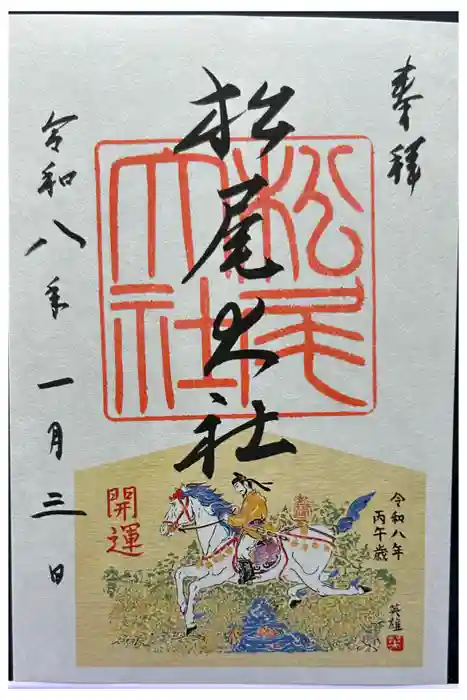 奉拝
松尾大社
松尾大社
令和八年
一月三日
令和八年
丙午歳
英雄
開運